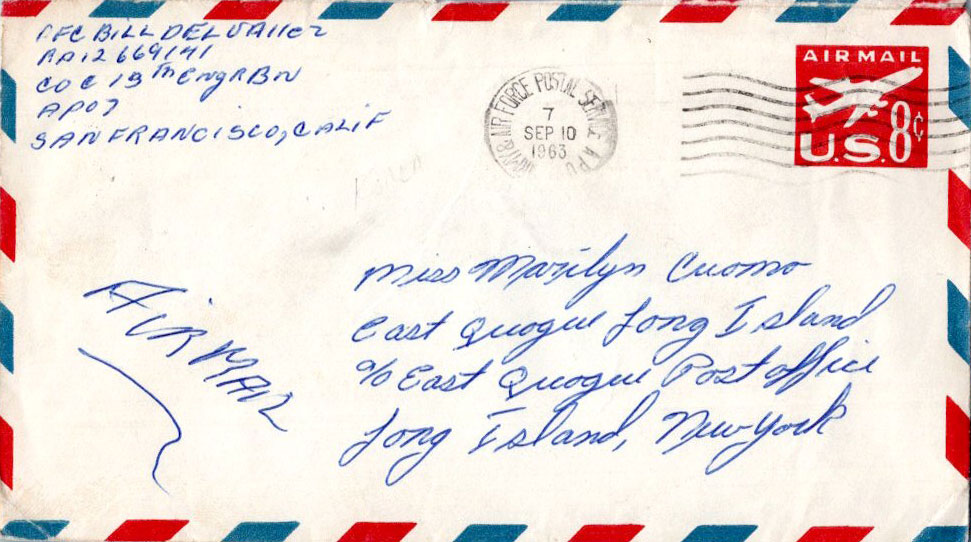 PFC BILL DELVALLEZ
RA12669141
CO C 13th Engr BN
APO 7
SAN FRANCISCO, CALIF
ARMY & AIR FORCE POSTAL SERVICE APO
7
SEP 10
1963
AIR MAIL
U.S. 8¢
Miss Marilyn Cuomo
East Quogue Long Island
c/o East Quogue Post office
Long Island, New York
AIRMAIL